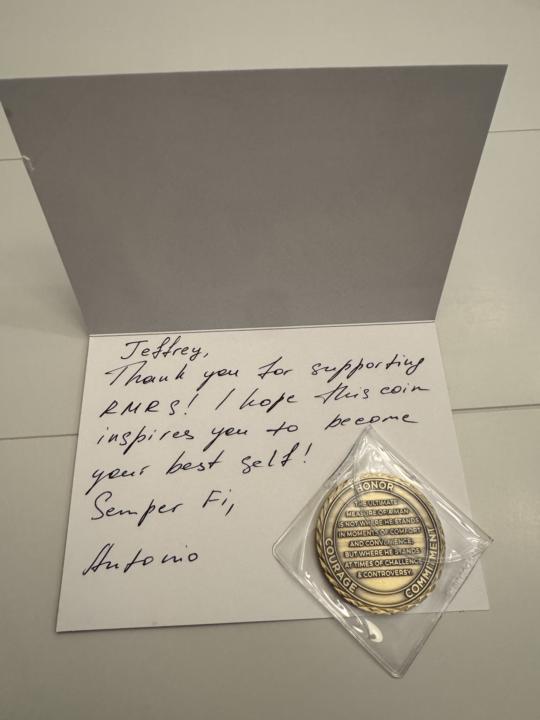 Jeffrey,
Thank you for supporting
RMRS! I hope this coin
inspires you to become
your best self!
Semper Fi,
Antonio
HONOR
THE ULTIMATE
MEASURE OF A MAN
IS NOT WHERE HE STANDS
IN MOMENTS OF COMFORT
AND CONVENIENCE,
BUT WHERE HE STANDS
AT TIMES OF CHALLENGE
& CONTROVERSY.
COURAGE
COMMITMENT